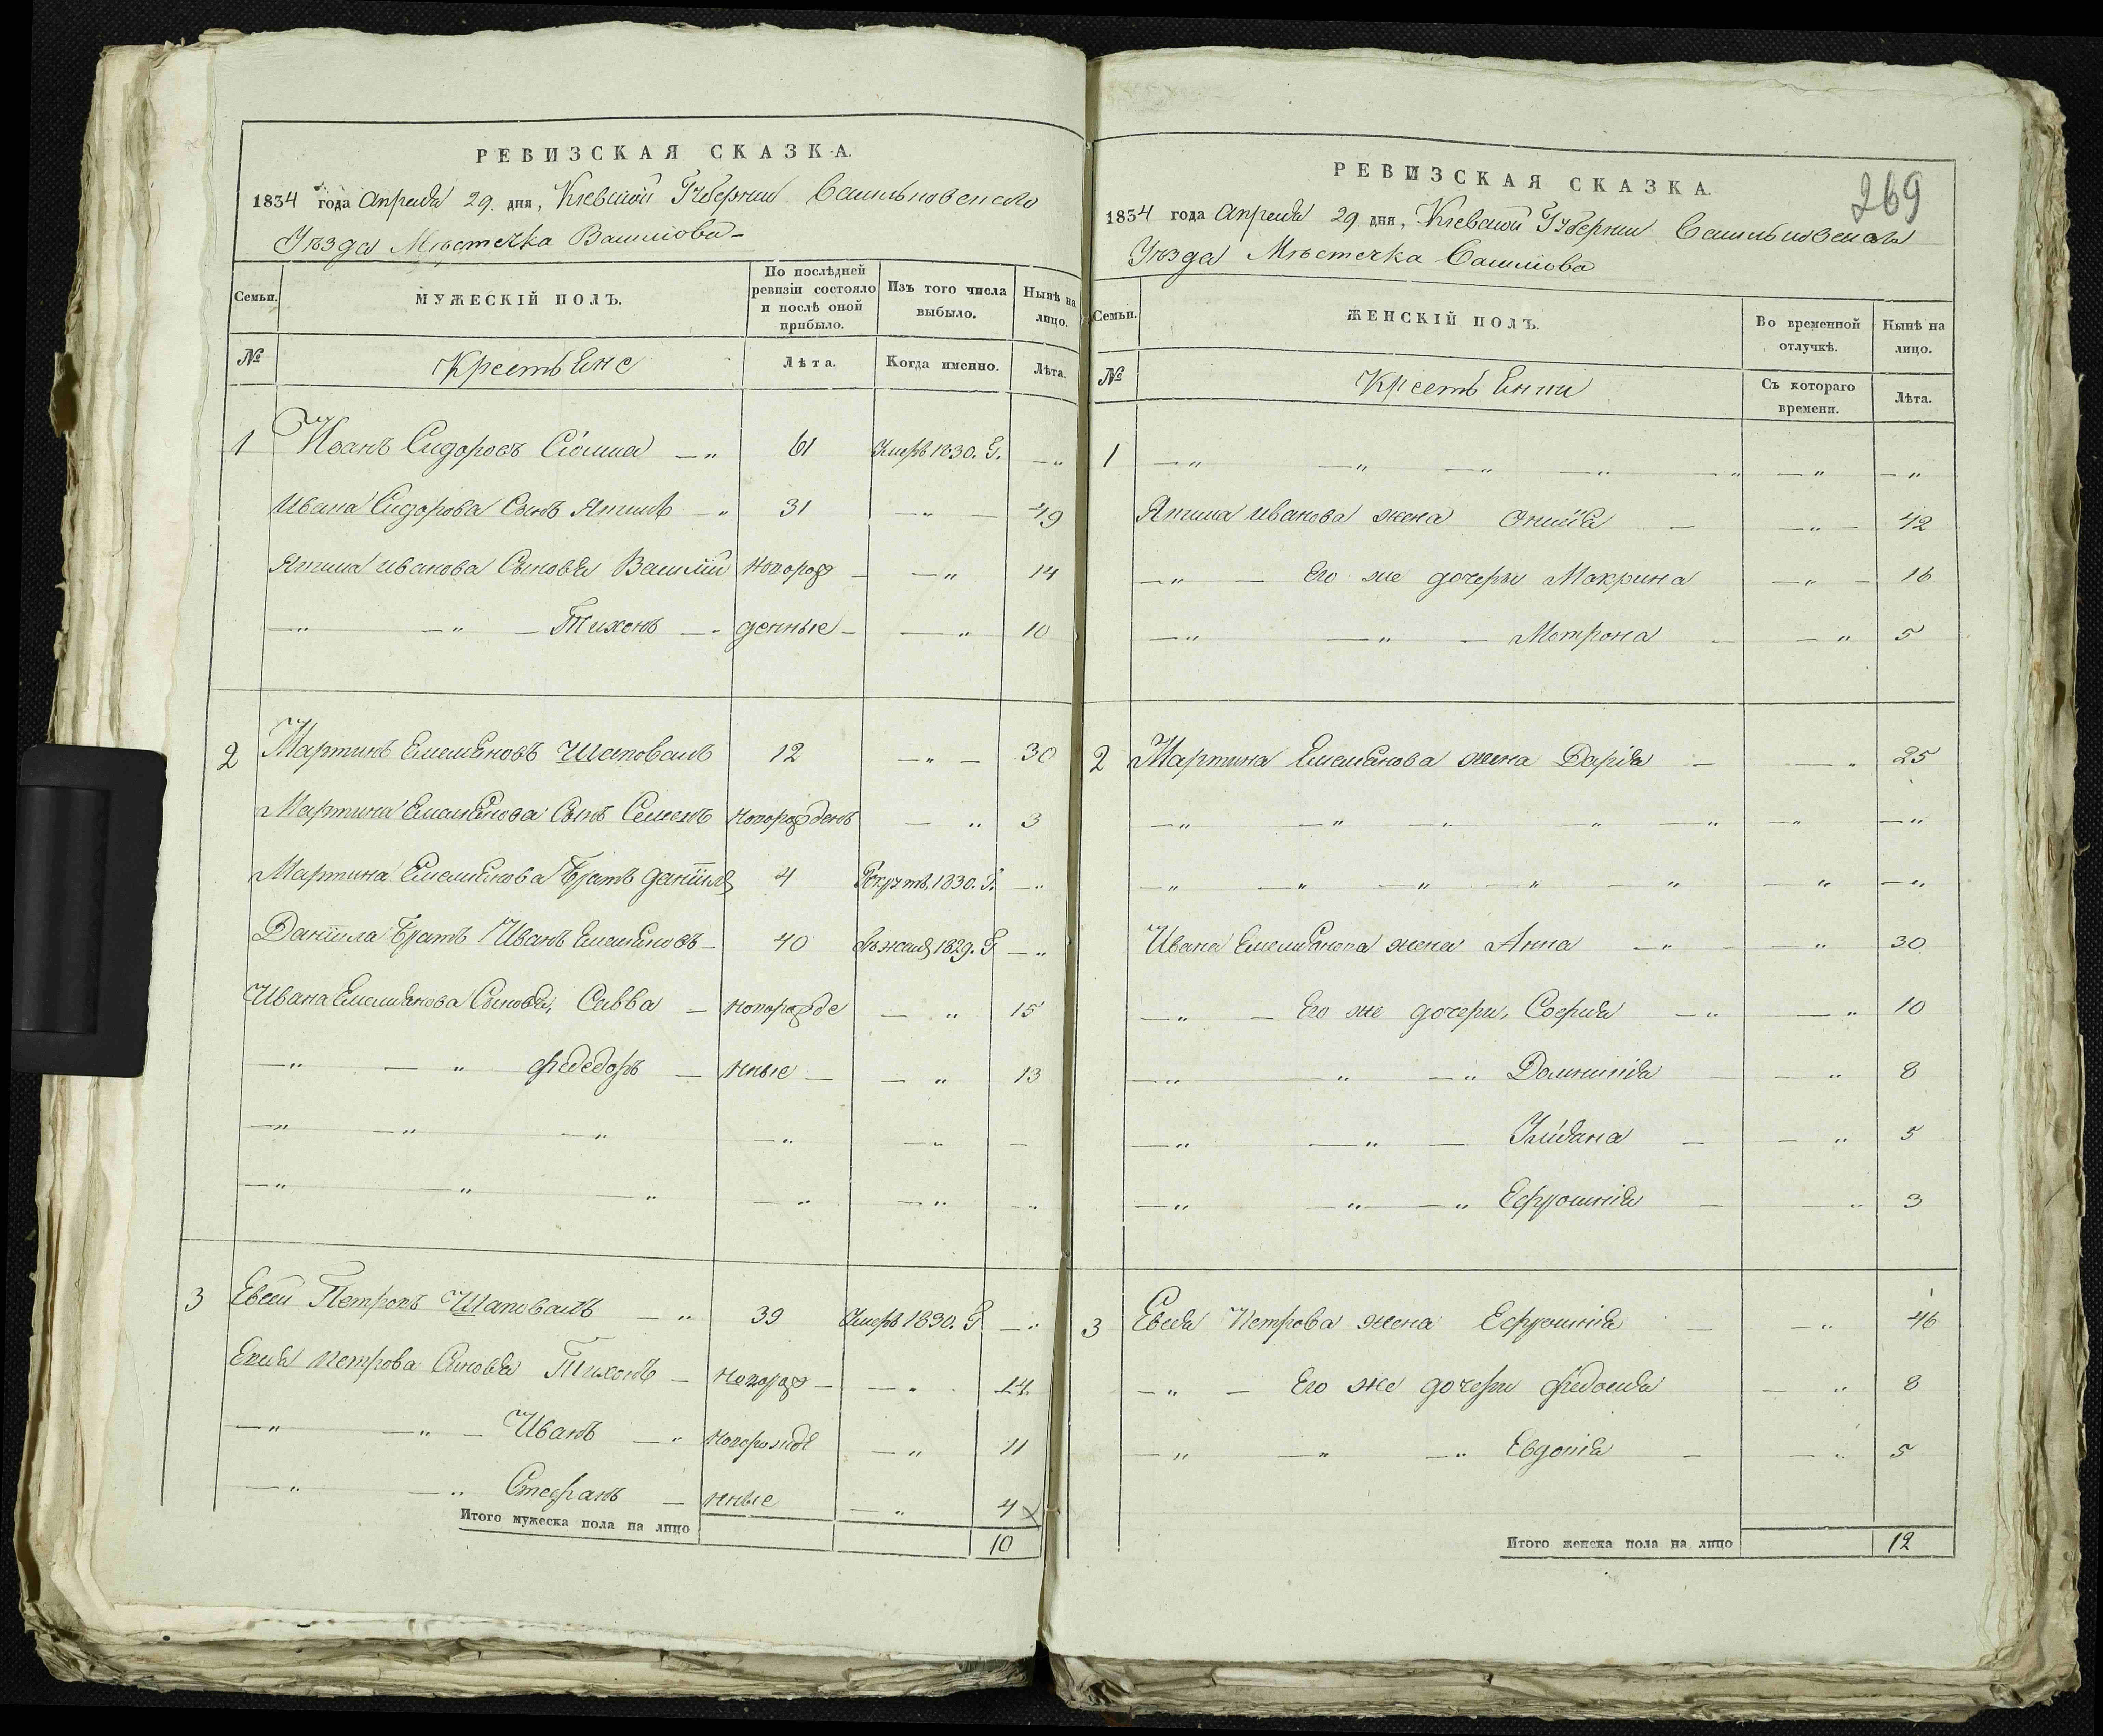 РЕВИЗСКАЯ СКАЗКА.
1834 года Апреля 29 дня, Киевской Губернии Васильковскаго
Уѣзда Мѣстечка Василіова
Семьи.
МУЖЕСКІЙ ПОЛЪ.
По послѣдней ревизіи состояло и послѣ оной прибыло.
Изъ того числа выбыло.
Нынѣ на лицо.
№ Крестьяне Лѣта. Когда именно. Лѣта.
1 Иванъ Сидоровъ 61 Умеръ 1830. Г. — „
Ивана Сидорова Сынъ — „ 31 — „ — 49
Иванова Сыновья Василій Новорож — „ 14
— „ — „ — Тихонъ — „ денные — — „ 10
2 Мартинъ Емельяновъ Шаповалъ 12 — „ — 30
Мартина Емельянова Сынъ Семенъ Новорожденъ — „ 3
Мартина Емельянова Братъ Даніилъ 4 Рекрутъ 1830. Г. — „
Даніила Братъ Иванъ Емельяновъ — 40 Бѣжалъ 1829. Г — „
Ивана Емельянова Сыновья, Савва — Новорожде — „ 15
— „ — „ Федоръ — нные — — „ 13
— „ — „ — „ — „ — „ —
— „ „ — „ — „ — „ — „
3 Евсей Петровъ Шаповалъ — „ 39 Умеръ 1830. Г — „
Евсея Петрова Сыновья Тихонъ — Новорож — — „ 14
— „ — „ — Иванъ — „ Новорожде — „ 11
— „ — „ Стефанъ — нные — „ 4
Итого мужеска пола на лицо 10
269
РЕВИЗСКАЯ СКАЗКА.
1834 года Апреля 29 дня, Киевской Губернии Васильковскаго
Уѣзда Мѣстечка Василіова
Семьи.
ЖЕНСКІЙ ПОЛЪ.
Во временной отлучкѣ.
Нынѣ на лицо.
№ Крестьянки Съ котораго времени. Лѣта.
1 — „ — „ — „ — „ — „ — „ — „
Иванова жена — — „ — 42
— „ — Его же дочери Макрина — „ — 16
— „ — „ — Мотрона — — „ 5
2 Мартина Емельянова жена Дарія — — „ 25
— „ — „ — „ „ — „ — „ — „
— „ — „ — „ — „ — „ — „ — „
Ивана Емельянова жена Анна — „ — „ 30
— „ — Его же дочери, София — „ — „ 10
— „ „ — „ Домникія — — „ 8
— „ — „ — Уліяна — — „ 5
— „ — „ — „ Ефросинія — — „ 3
3 Евсея Петрова жена Ефросинія — — „ 46
— „ — Его же дочери Федосия — „ 8
— „ — „ — „ Евдокія — — „ 5
Итого женска пола на лицо 12